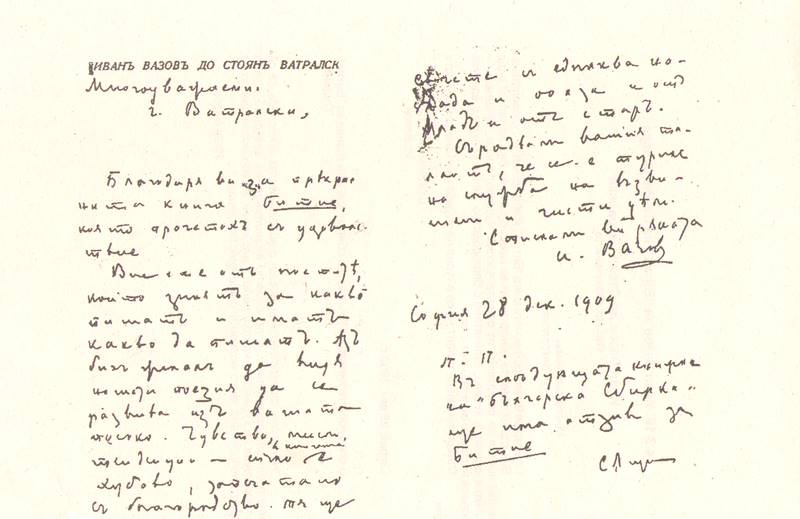 ИВАНЪ ВАЗОВЪ ДО СТОЯНЪ ВАТРАЛСК
Многоуважаеми.
г. Ватралски,
Благодаря ви за прѣкрас
ната книга Битие,
която прочетохъ съ удоволс-
твие
Вие сте отъ поетитѣ,
които знаятъ за какво
пишатъ и иматъ
какво да пишатъ. Азъ
бихъ желалъ да видя
нашата поезия да се
развива изъ вашата
посока. Чувство, мисли,
тенденция – сичко въ книгата е
хубаво,
съ благородство. Тя ще
се чете съ еднаква по-
лза и отъ
младъ и отъ старъ.
вашия та-
лантъ, че се е турилъ
на служба на възви-
шени и чисти цѣли.
Стискамъ ви ръката
И. Вазов
София 28 дек. 1909
П. П.
Въ слѣдующата книжка
на "Българска Сбирка"
ще има отзивъ за
Битие